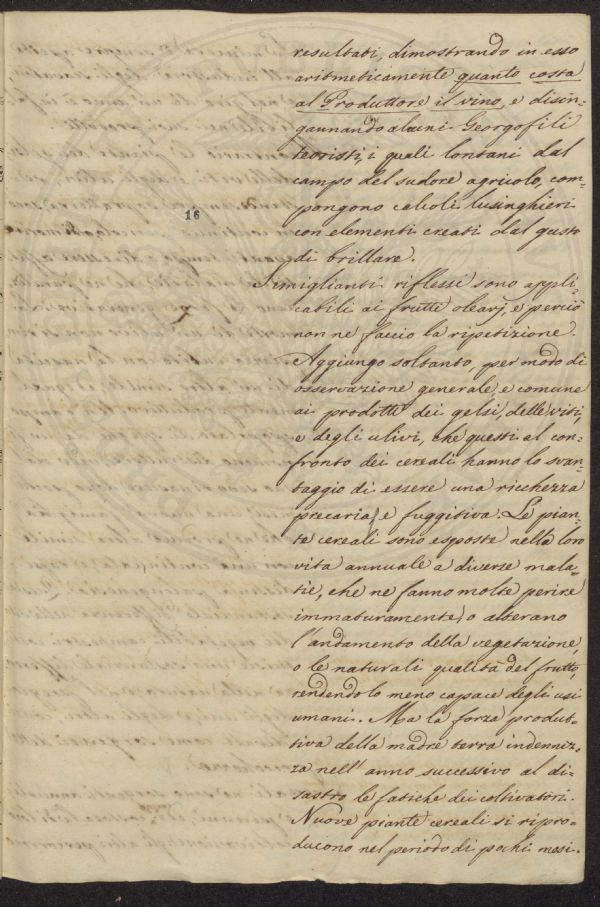 resultati, dimostrando in esso
aritmeticamente quanto costa
al Produttore il vino, e disin-
gannando alcuni Georgofili
teoristi, i quali lontani dal
campo del sudore agricolo, com-
16
pongono calcoli lusinghieri
con elementi creati dal gusto
di brillare.
Simiglianti riflessi sono appli-
cabili ai frutti olearj, e perciò
non ne faccio la ripetizione.
Aggiungo soltanto, per modo di
osservazione generale, e comune
ai prodotti dei gelsi, delle viti,
e degli ulivi, che questi al con-
fronto dei cereali hanno lo svan-
taggio di essere una ricchezza
precaria, e fuggitiva. Le pian-
te cereali sono esposte nella loro
vita annuale a diverse mala-
tie, che ne fanno molte perire
immaturamente, o alterano
l'andamento della vegetazione,
o le naturali qualità del frutto,
rendendolo meno capace degli usi
umani. Ma la forza produt-
tiva della madre terra indenniz-
za nell'anno successivo al di-
sastro le fatiche dei coltivatori.
Nuove piante cereali si ripro-
ducono nel periodo di pochi mesi.